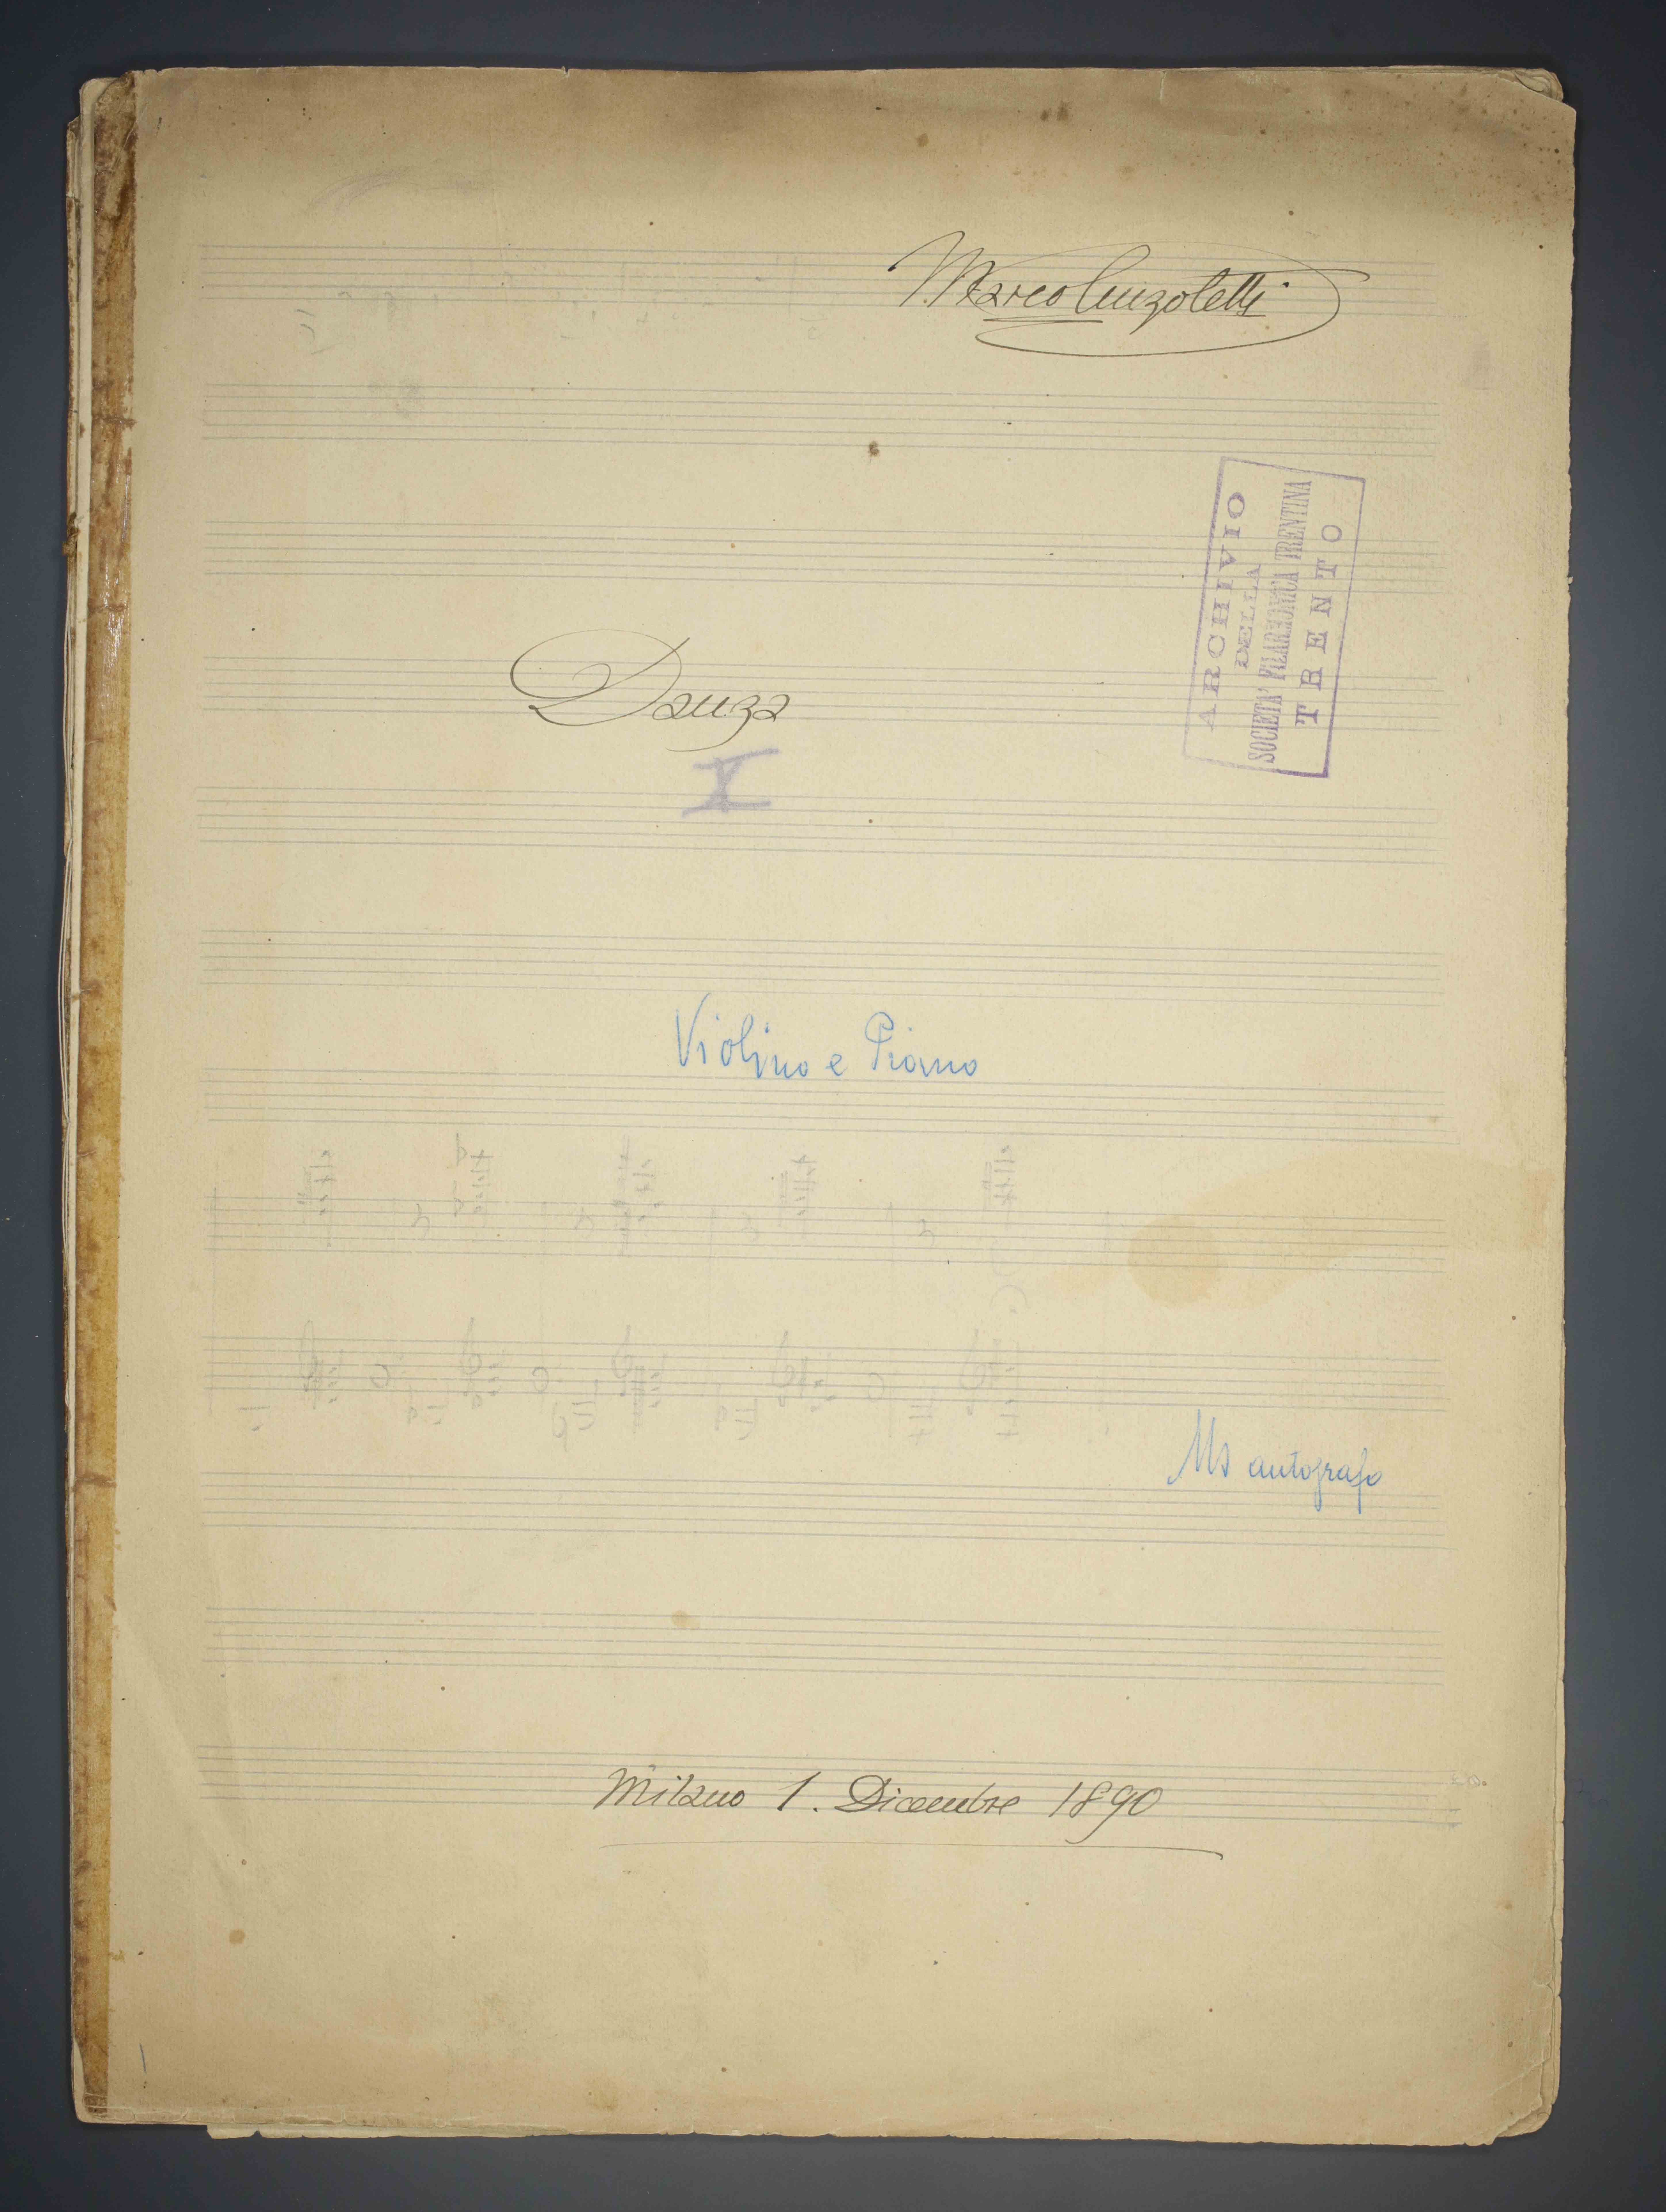 Marco Anzoletti
ARCHIVIO
DELLA
SOCIETA' FILARMONICA TRENTINA
TRENTO
Danza
X
Violino e Piano
Ms autografo
Milano 1. Dicembre 1890